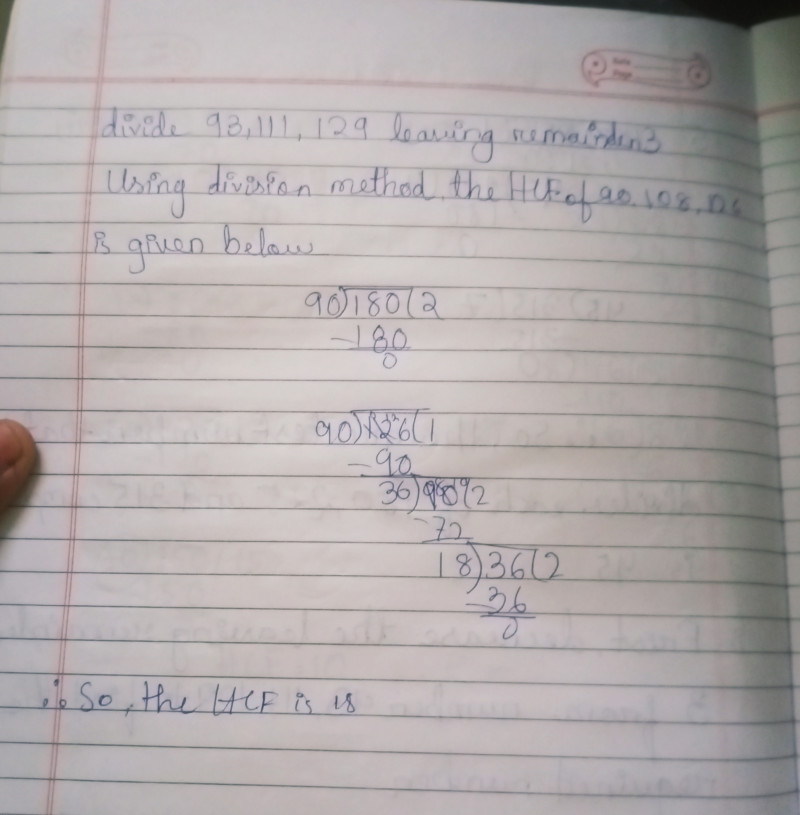 divide 93,111, 129 leaving remainder 3
Using division method, the HCF of 90, 108, 126
is given below
90)180(2
-180
0
90)126(1
-90
36)90(2
-72
18)36(2
-36
0
∴ So, the HCF is 18